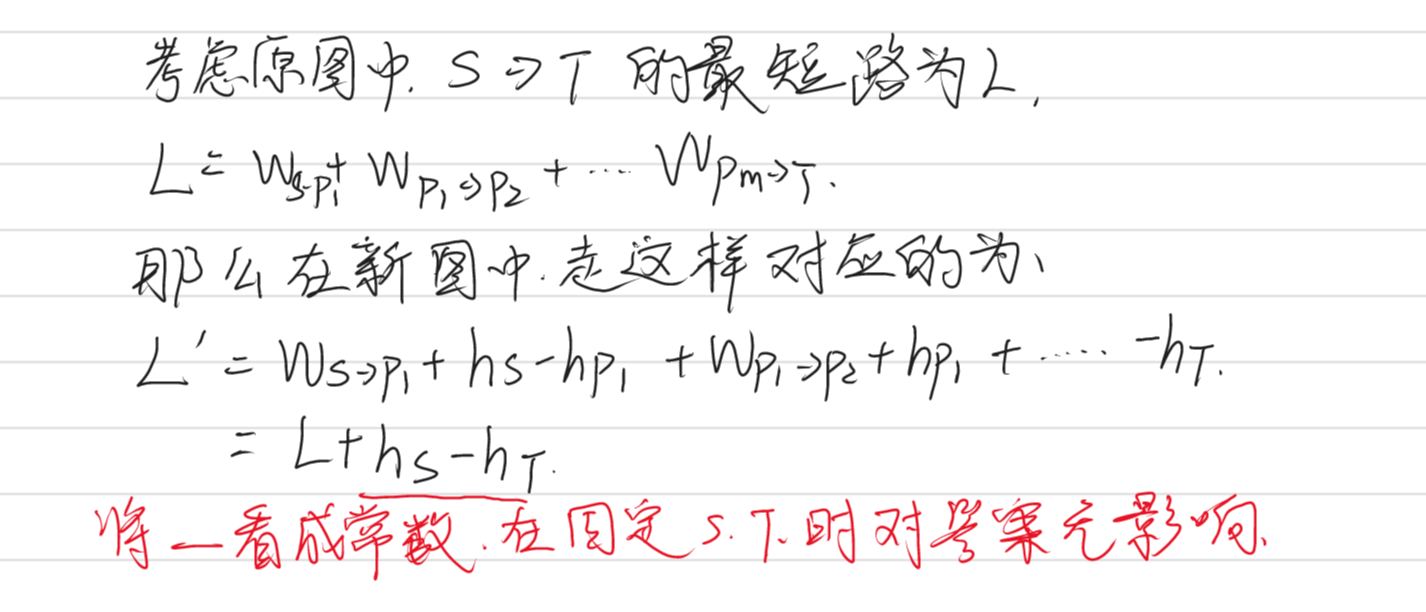 考虑原图中. S→T 的最短路为L,
L = W_{S→P_1} + W_{P_1→P_2} + ⋯ W_{P_m→T}.
那么在新图中.走这样对应的为、
L' = W_{S→P_1} + h_S - h_{P_1} + W_{P_1→P_2} + h_{P_1} + ⋯⋯ - h_T.
= L + h_S - h_T.
将 — 看成常数.在固定 S.T.时对答案无影响.